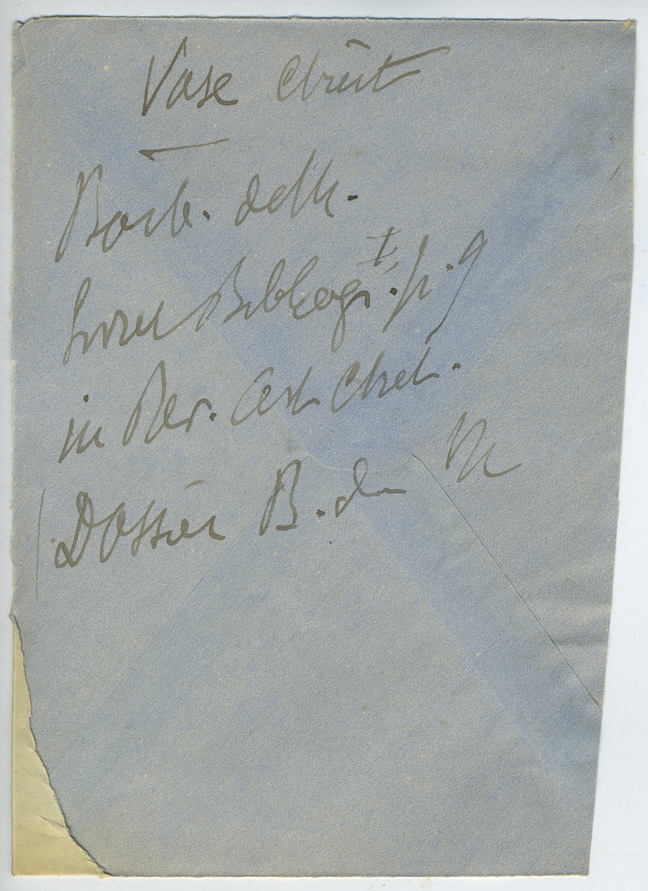 Vase Chrét
Barb. de M.
Livre Bibliogr. I, p. 9
in Rev. Art Chrét.
Dossier B. de M